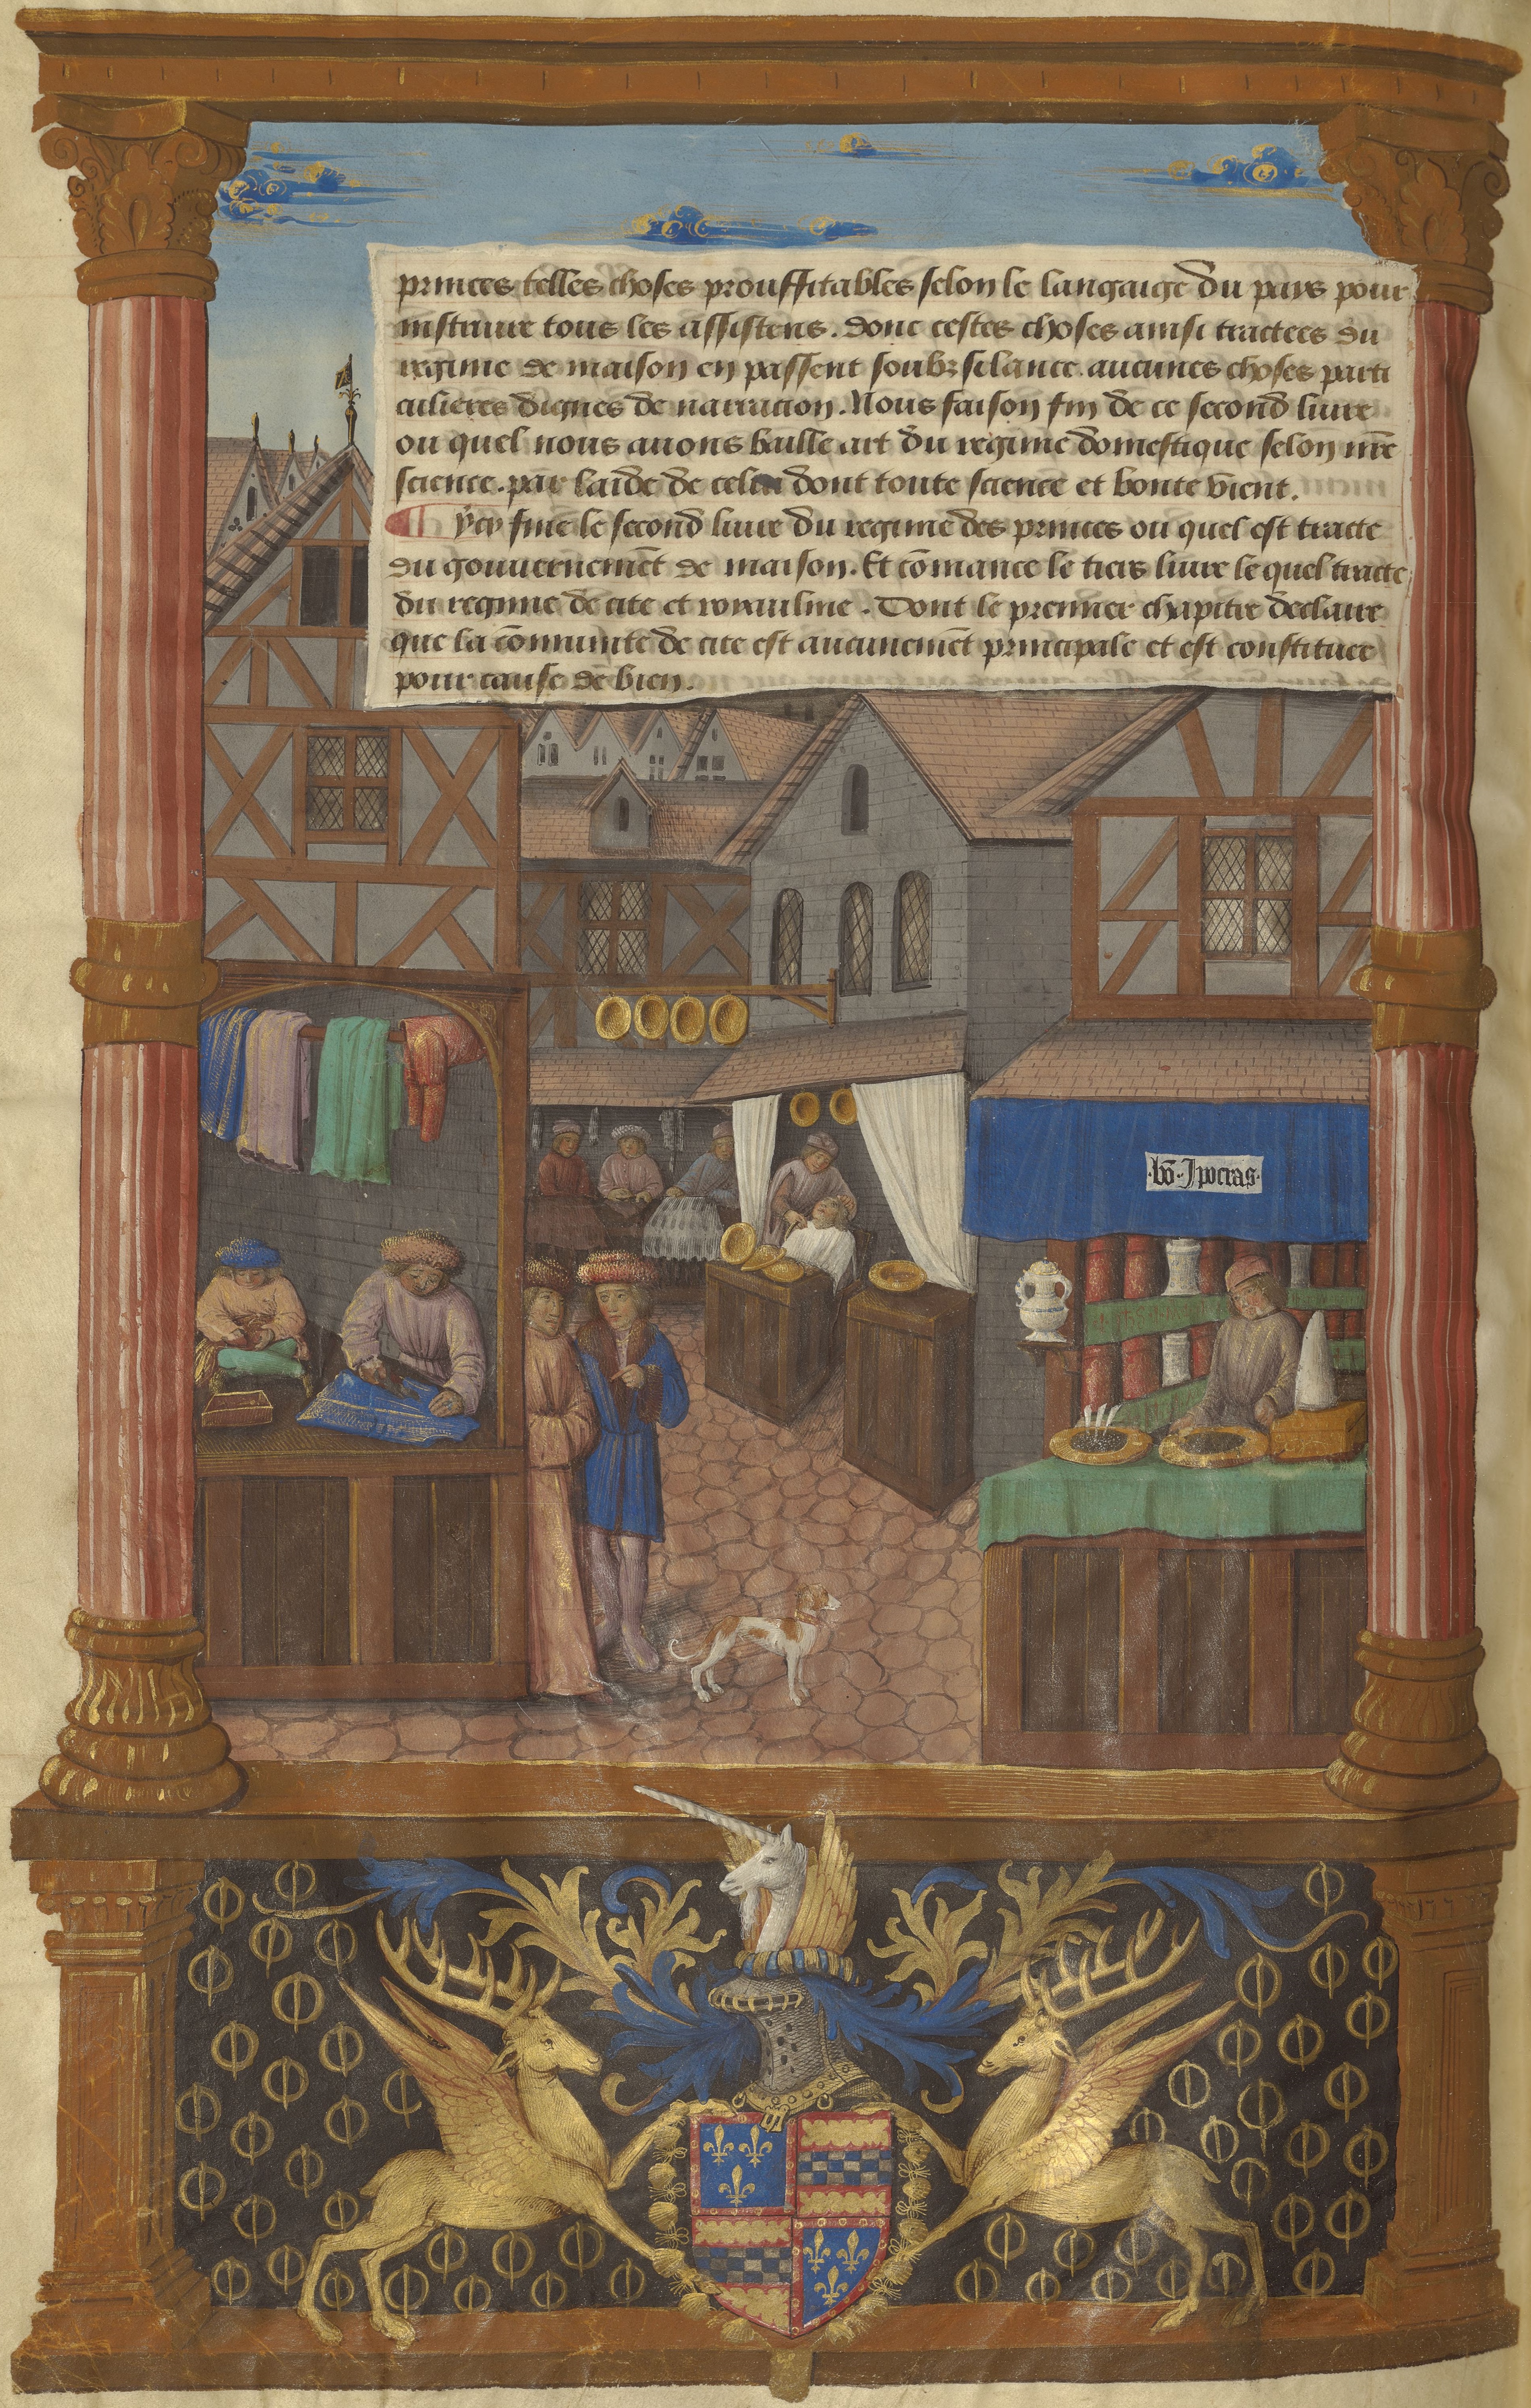 princes telles choses prouffitables selon le langaige du pays pour
instruire tous les assistens. donc cestes choses ainsi tractees du
regime de maison en passent soubz silance. aucunes choses parti
culieres dignes de narracion. Nous faison fin de ce second liure
ou quel nous auons baille art du regime domestique selon nr̄e
science. par laide de celui dont toute science et bonte vient.
ycy fine le second liure du regime des princes ou quel est tracte
du gouuernemēt de maison. Et cōmance le tiers liure le quel tracte
du regime de cite et royaulme. Dont le premier chapitre declaire
que la cōmunite de cite est aucunemēt principale et est constituee
pour cause de bien.
.bō. Ipocras.